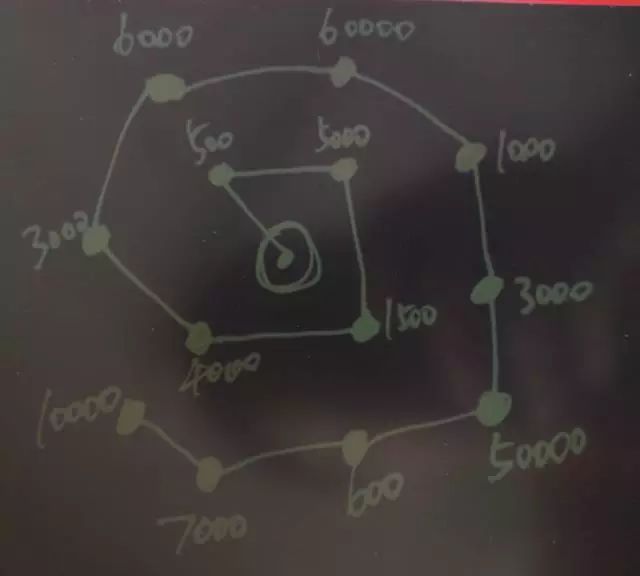 6000
60000
500
5000
1000
3000
3000
1500
4000
10000
50000
600
7000